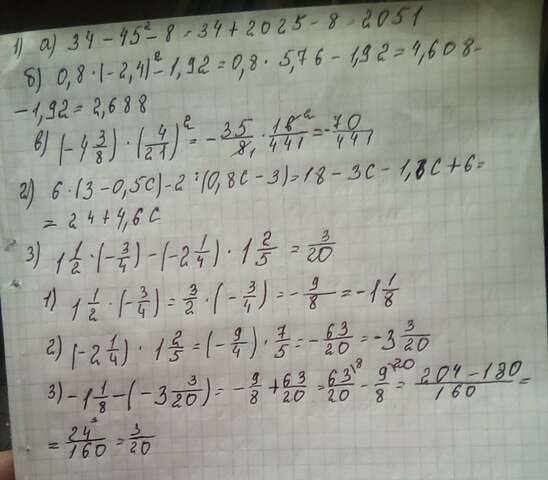 1) а) 34 - 45² - 8 = 34 + 2025 - 8 = 2051
б) 0,8 · (-2,4)² - 1,92 = 0,8 · 5,76 - 1,92 = 4,608 -
- 1,92 = 2,688
в) (-4 3/8) · (4/21)² = - 35/8 · 16/441 = - 70/441
2) 6 · (3 - 0,5с) - 2 · (0,8с - 3) = 18 - 3с - 1,6с + 6 =
= 24 + 4,6с
3) 1 1/2 · (- 3/4) - (-2 1/4) · 1 2/5 = 3/20
1) 1 1/2 · (- 3/4) = 3/2 · (- 3/4) = - 9/8 = -1 1/8
2) (-2 1/4) · 1 2/5 = (- 9/4) · 7/5 = - 63/20 = -3 3/20
3) -1 1/8 - (-3 3/20) = - 9/8 + 63/20 = 63/20 \8 - 9/8 \20 = 204 - 180/160 =
= 24/160 = 3/20